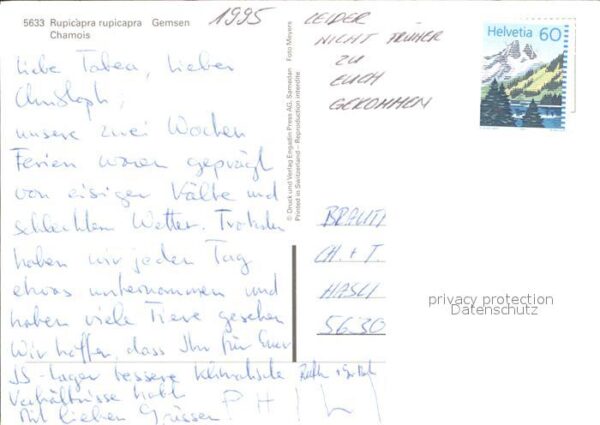 5633 Rupicapra rupicapra Gemsen
Chamois
1995
LEIDER
NICHT FRÜHER
ZU
EUCH
GEKOMMEN
Helvetia 60
Liebe Tabea, lieber
Christoph,
unsere zwei Wochen
Ferien waren geprägt
von eisiger Kälte und
schlechtem Wetter. Trotzdem
haben wir jeden Tag
etwas unternommen und
haben viele Tiere gesehen
Wir hoffen, dass Ihr für Euer
JS-Lager bessere klimatische
Verhältnisse habt
Mit lieben Grüssen
© Druck und Verlag Engadin Press AG, Samedan Foto Meyers
Printed in Switzerland – Reproduction interdite
CH. + T.
HASLI
5630
privacy protection
Datenschutz